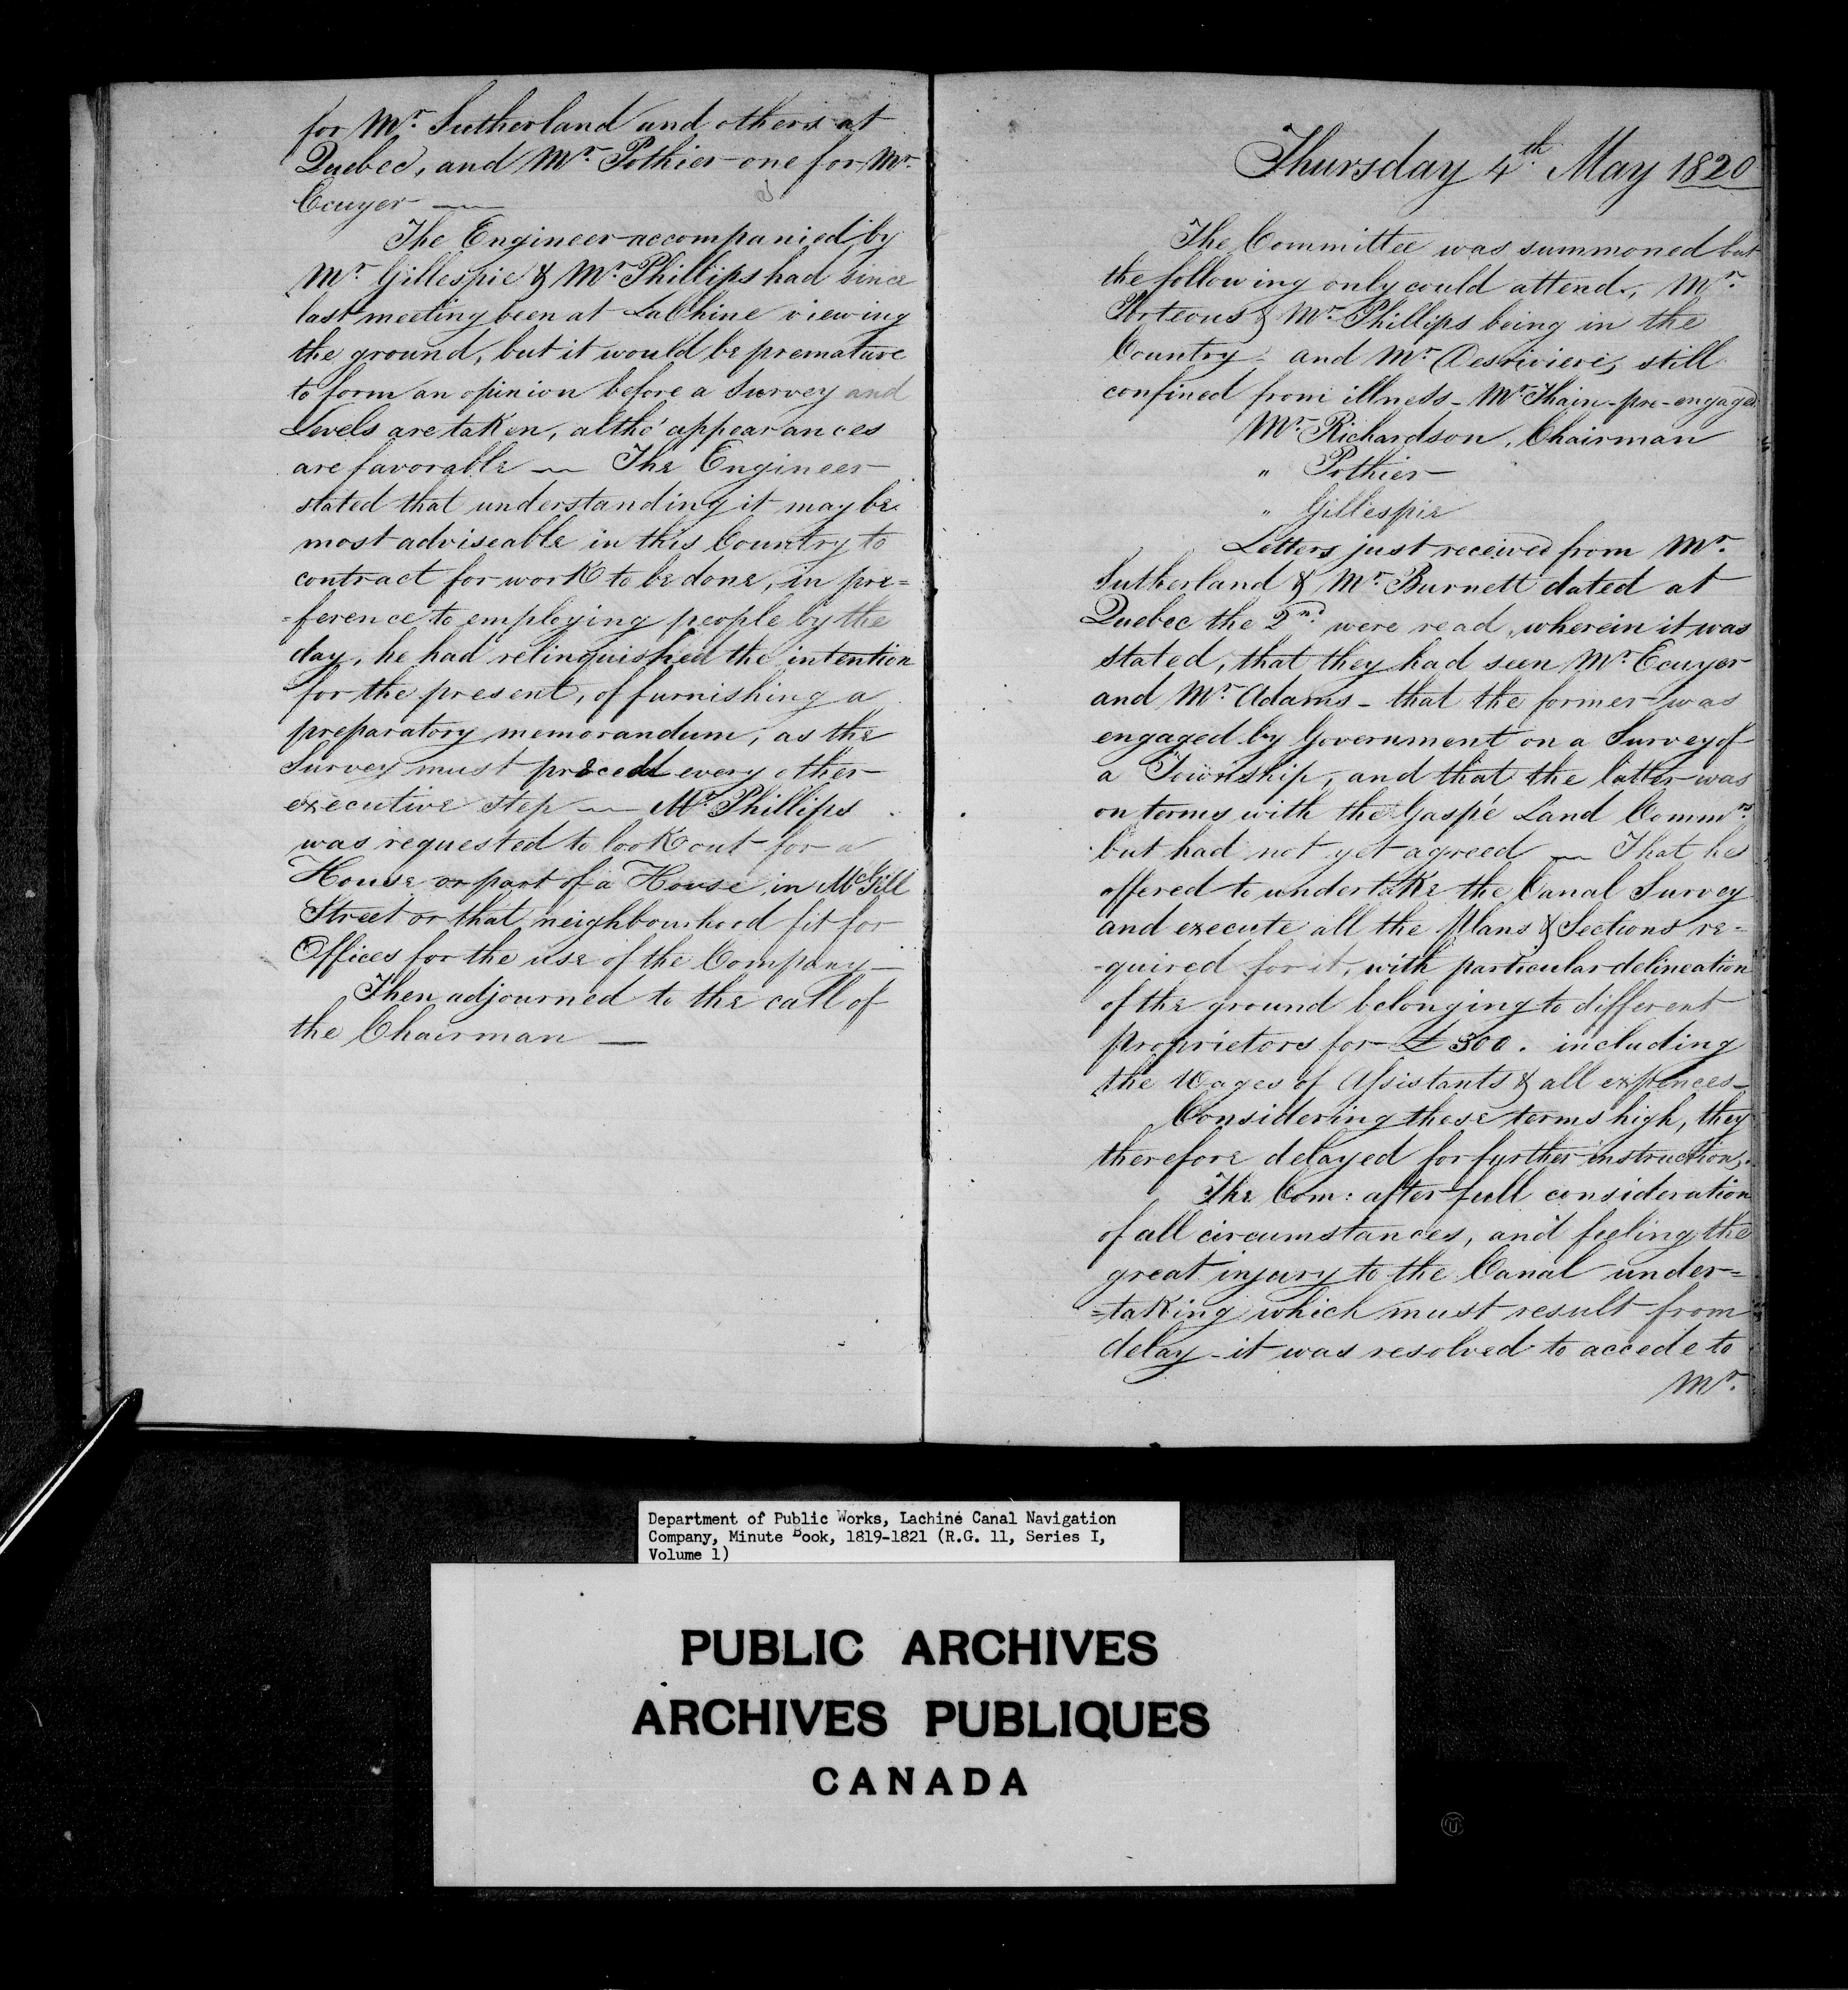 for Mr. Sutherland and others at
Quebec, and Mr. Pothier one for Mr.
Ecuyer —
The Engineer accompanied by
Mr. Gillespie & Mr. Phillips had since
last meeting been at LaChine viewing
the ground, but it would be premature
to form an opinion before a Survey and
Levels are taken, altho' appearances
are favorable — The Engineer
stated that understanding it may be
most adviseable in this Country to
contract for work to be done, in pre=
=ference to employing people by the
day, he had relinquished the intention
for the present, of furnishing a
preparatory memorandum, as the
Survey must precede every other
executive step — Mr. Phillips
was requested to look out for a
House or part of a House in McGill
Street or that neighbourhood fit for
Offices for the use of the Company —
Then adjourned to the call of
the Chairman —
Thursday 4th May 1820
The Committee was summoned but
the following only could attend, Mr.
Porteous & Mr. Phillips being in the
Country - and Mr. Desriviere, still
confined from illness - Mr. Thain - pre-engaged
Mr. Richardson, Chairman
" Pothier
" Gillespie
Letters just received from Mr.
Sutherland & Mr. Burnett dated at
Quebec the 2nd. were read, wherein it was
stated, that they had seen Mr. Ecuyer
and Mr. Adams - that the former was
engaged by Government on a Survey of
a Township, and that the latter was
on terms with the Gaspé Land Commrs.
but had not yet agreed — That he
offered to undertake the Canal Survey
and execute all the Plans & Sections re=
-quired for it, with particular delineation
of the ground belonging to different
proprietors for £300. including
the Wages of Assistants & all expences —
Considering these terms high, they
therefore delayed for further instruction,
The Com: after full consideration
of all circumstances, and feeling the
great injury to the Canal under=
=taking which must result from
delay - it was resolved to accede to
Mr.
Department of Public Works, Lachine Canal Navigation
Company, Minute Book, 1819-1821 (R.G. 11, Series I,
Volume 1)
PUBLIC ARCHIVES
ARCHIVES PUBLIQUES
CANADA